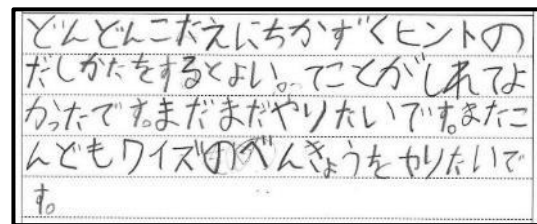 どんどんこたえにちかずくヒントの
だしかたをするとよい。ってことがしれてよ
かったです。まだまだやりたいです。またこ
んどもワイズのべんきょうをやりたいで
す。